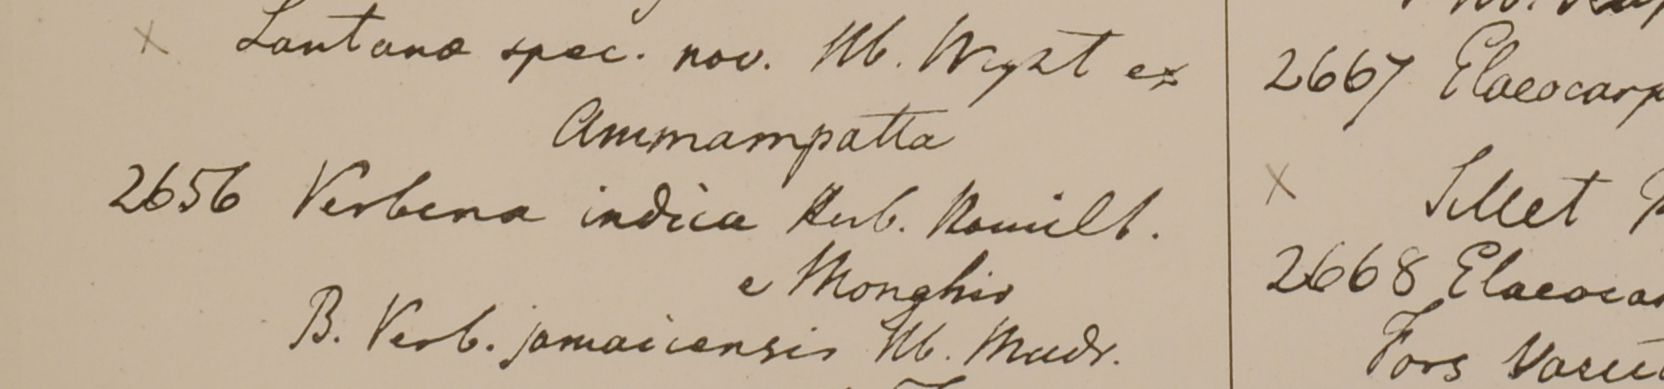 × Lantana spec. nov. Hb. Wight ex
Ammampatta
2656 Verbena indica Herb. Hamilt.
e Monghir
B. Verb. jamaicensis Hb. Madr.
2667 Elaeocarp
× Sillet
2668 Elaeocar
Fors